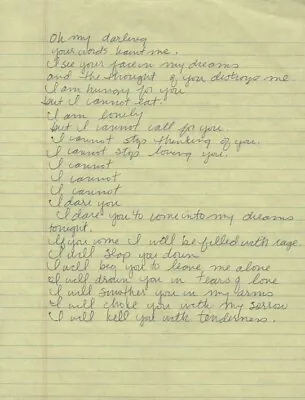 Oh my darling
your words haunt me.
I see your face in my dreams
and the thought of you destroys me
I am hungry for you
but I cannot eat.
I am lonely
but I cannot call for you.
I cannot stop thinking of you.
I cannot stop loving you.
I cannot
I cannot
I cannot
I dare you
I dare you to come into my dreams
tonight.
If you come I will be filled with rage.
I will slap you down
I will beg you to leave me alone
I will drown you in tears of love
I will smother you in my arms
I will choke you with my sorrow
I will kill you with tenderness.